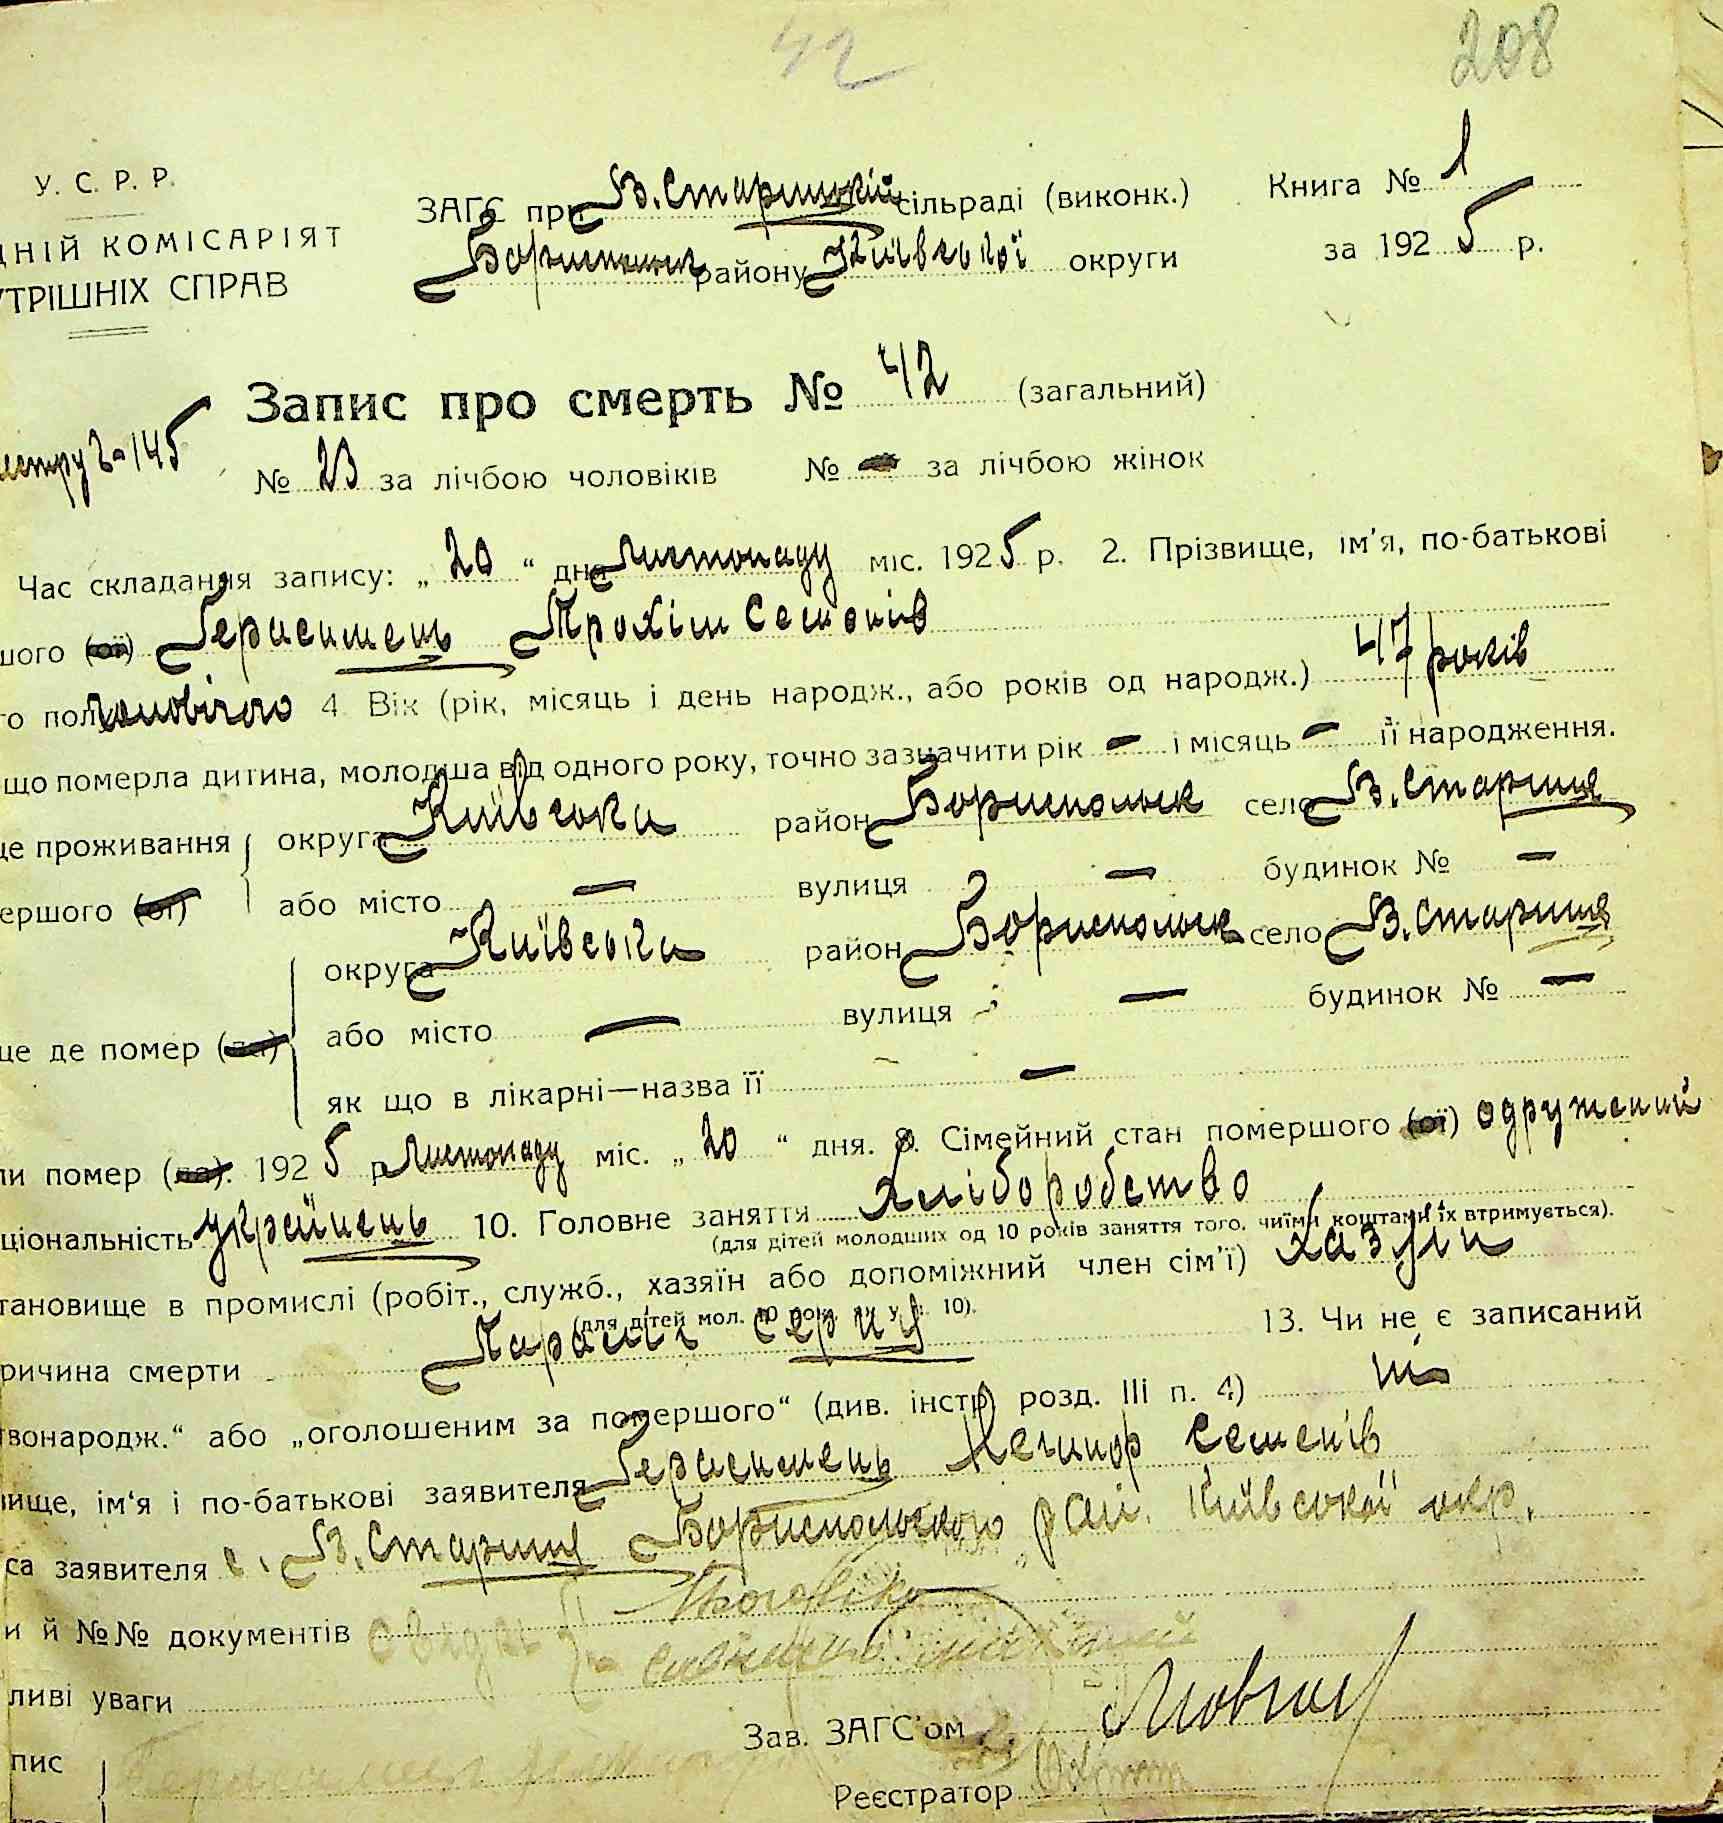 42
208
У. С. Р. Р.
ДНІЙ КОМІСАРІЯТ
УТРІШНІХ СПРАВ
ЗАГС при В. Старицькій сільраді (виконк.)
району Київської округи
Книга № 1
за 1925 р.
Запис про смерть № 42 (загальний)
№ 23 за лічбою чоловіків № за лічбою жінок
Час складання запису: „20“ дня листопаду міс. 1925 р. 2. Прізвище, ім'я, по-батькові
шого (ої) Герасимець Трохім Семенів
го пол чоловічого 4 Вік (рік, місяць і день народж., або років од народж.) 47 років
що померла дитина, молодша від одного року, точно зазначити рік — і місяць — її народження.
це проживання округа Київська район Бориспольск село В. Стариця
ершого (ої) або місто — вулиця — будинок № —
округа Київська район Бориспольск село В. Стариця
це де помер (ла) або місто — вулиця — будинок № —
як що в лікарні—назва її —
ли помер (ла). 1925 р листопаду міс. „20“ дня. 8. Сімейний стан помершого (ої) одружений
ціональність українець 10. Головне заняття хліборобство
(для дітей молодших од 10 років заняття того, чиїми коштами їх втримується).
тановище в промислі (робіт., служб., хазяїн або допоміжний член сім'ї) хазяїн
(для дітей мол. 10 рок. як у п. 10).
ричина смерти Параліч серця 13. Чи не є записаний
вонародж.“ або „оголошеним за помершого“ (див. інстр. розд. III п. 4) ні
вище, ім'я і по-батькові заявителя Герасимець Нечипор Семенів
са заявителя с. В. Стариця Бориспольского рай. Київської окр.
и й №№ документів
ливі уваги
Зав. ЗАГС'ом
пис
Реєстратор